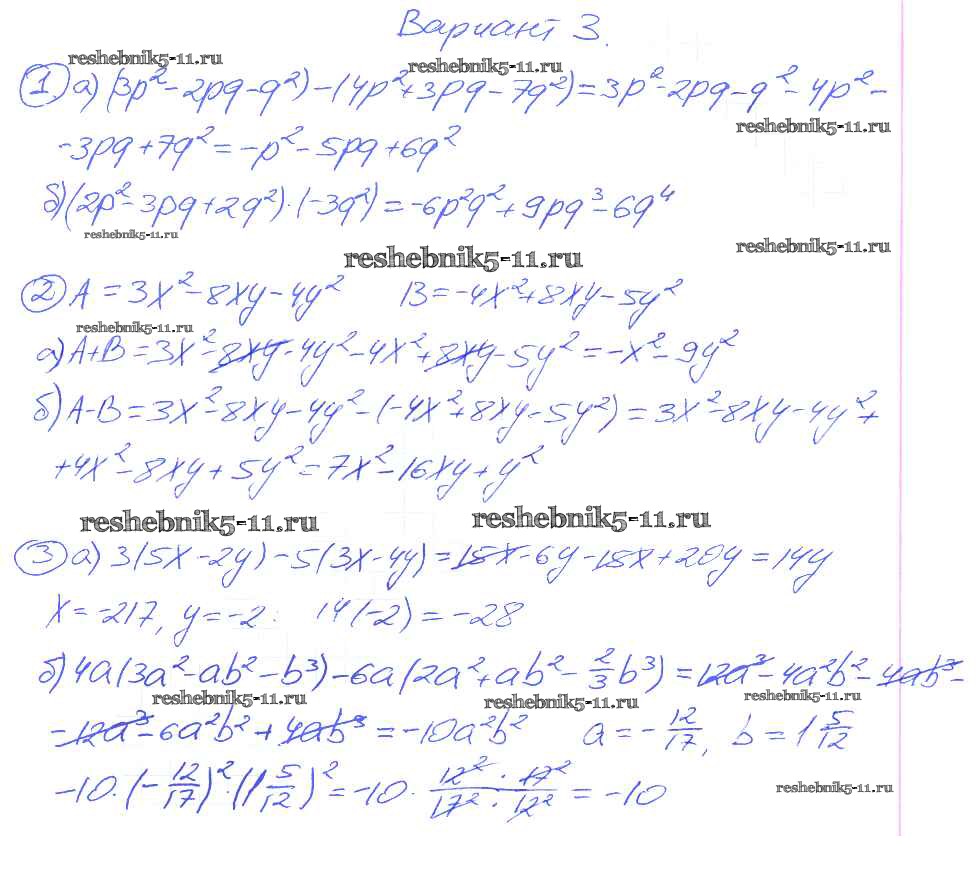 Вариант 3.
reshebnik5-11.ru reshebnik5-11.ru
1 а) (3p² - 2pq - q²) - (4p² + 3pq - 7q²) = 3p² - 2pq - q² - 4p² -
reshebnik5-11.ru
- 3pq + 7q² = -p² - 5pq + 6q²
б) (2p² - 3pq + 2q²) · (-3q²) = -6p²q² + 9pq³ - 6q⁴
reshebnik5-11.ru reshebnik5-11.ru
reshebnik5-11.ru
2 A = 3x² - 8xy - 4y² B = -4x² + 8xy - 5y²
reshebnik5-11.ru
а) A+B = 3x² - 8xy - 4y² - 4x² + 8xy - 5y² = -x² - 9y²
б) A-B = 3x² - 8xy - 4y² - (-4x² + 8xy - 5y²) = 3x² - 8xy - 4y² +
+ 4x² - 8xy + 5y² = 7x² - 16xy + y²
reshebnik5-11.ru reshebnik5-11.ru
3 а) 3(5x - 2y) - 5(3x - 4y) = 15x - 6y - 15x + 20y = 14y
x = -217, y = -2: 14(-2) = -28
б) 4a(3a² - ab² - b³) - 6a(2a² + ab² - 2/3 b³) = 12a³ - 4a²b² - 4ab³ -
reshebnik5-11.ru reshebnik5-11.ru reshebnik5-11.ru
- 12a³ - 6a²b² + 4ab³ = -10a²b² a = - 12/17, b = 1 5/12
-10 · (- 12/17)² · (1 5/12)² = -10 · 12² · 17² / 17² · 12² = -10
reshebnik5-11.ru